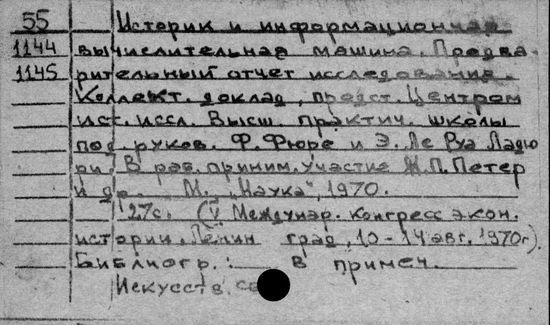 55 Историк и информационная
1144 вычислительная машина. Предва-
1145 рительный отчет исследования.
Коллект. доклад, предст. Центром
ист. иссл. Высш. практич. школы
под руков. Ф. Фюре и Э. Ле Руа Ладю
ри. В раб. приним. участие Ж.П. Петер
и др. М. „Наука", 1970.
27с. (V Междунар. конгресс экон.
истории. Ленин град, 10-14 авг. 1970г).
Библиогр.: в примеч.
Искусств.